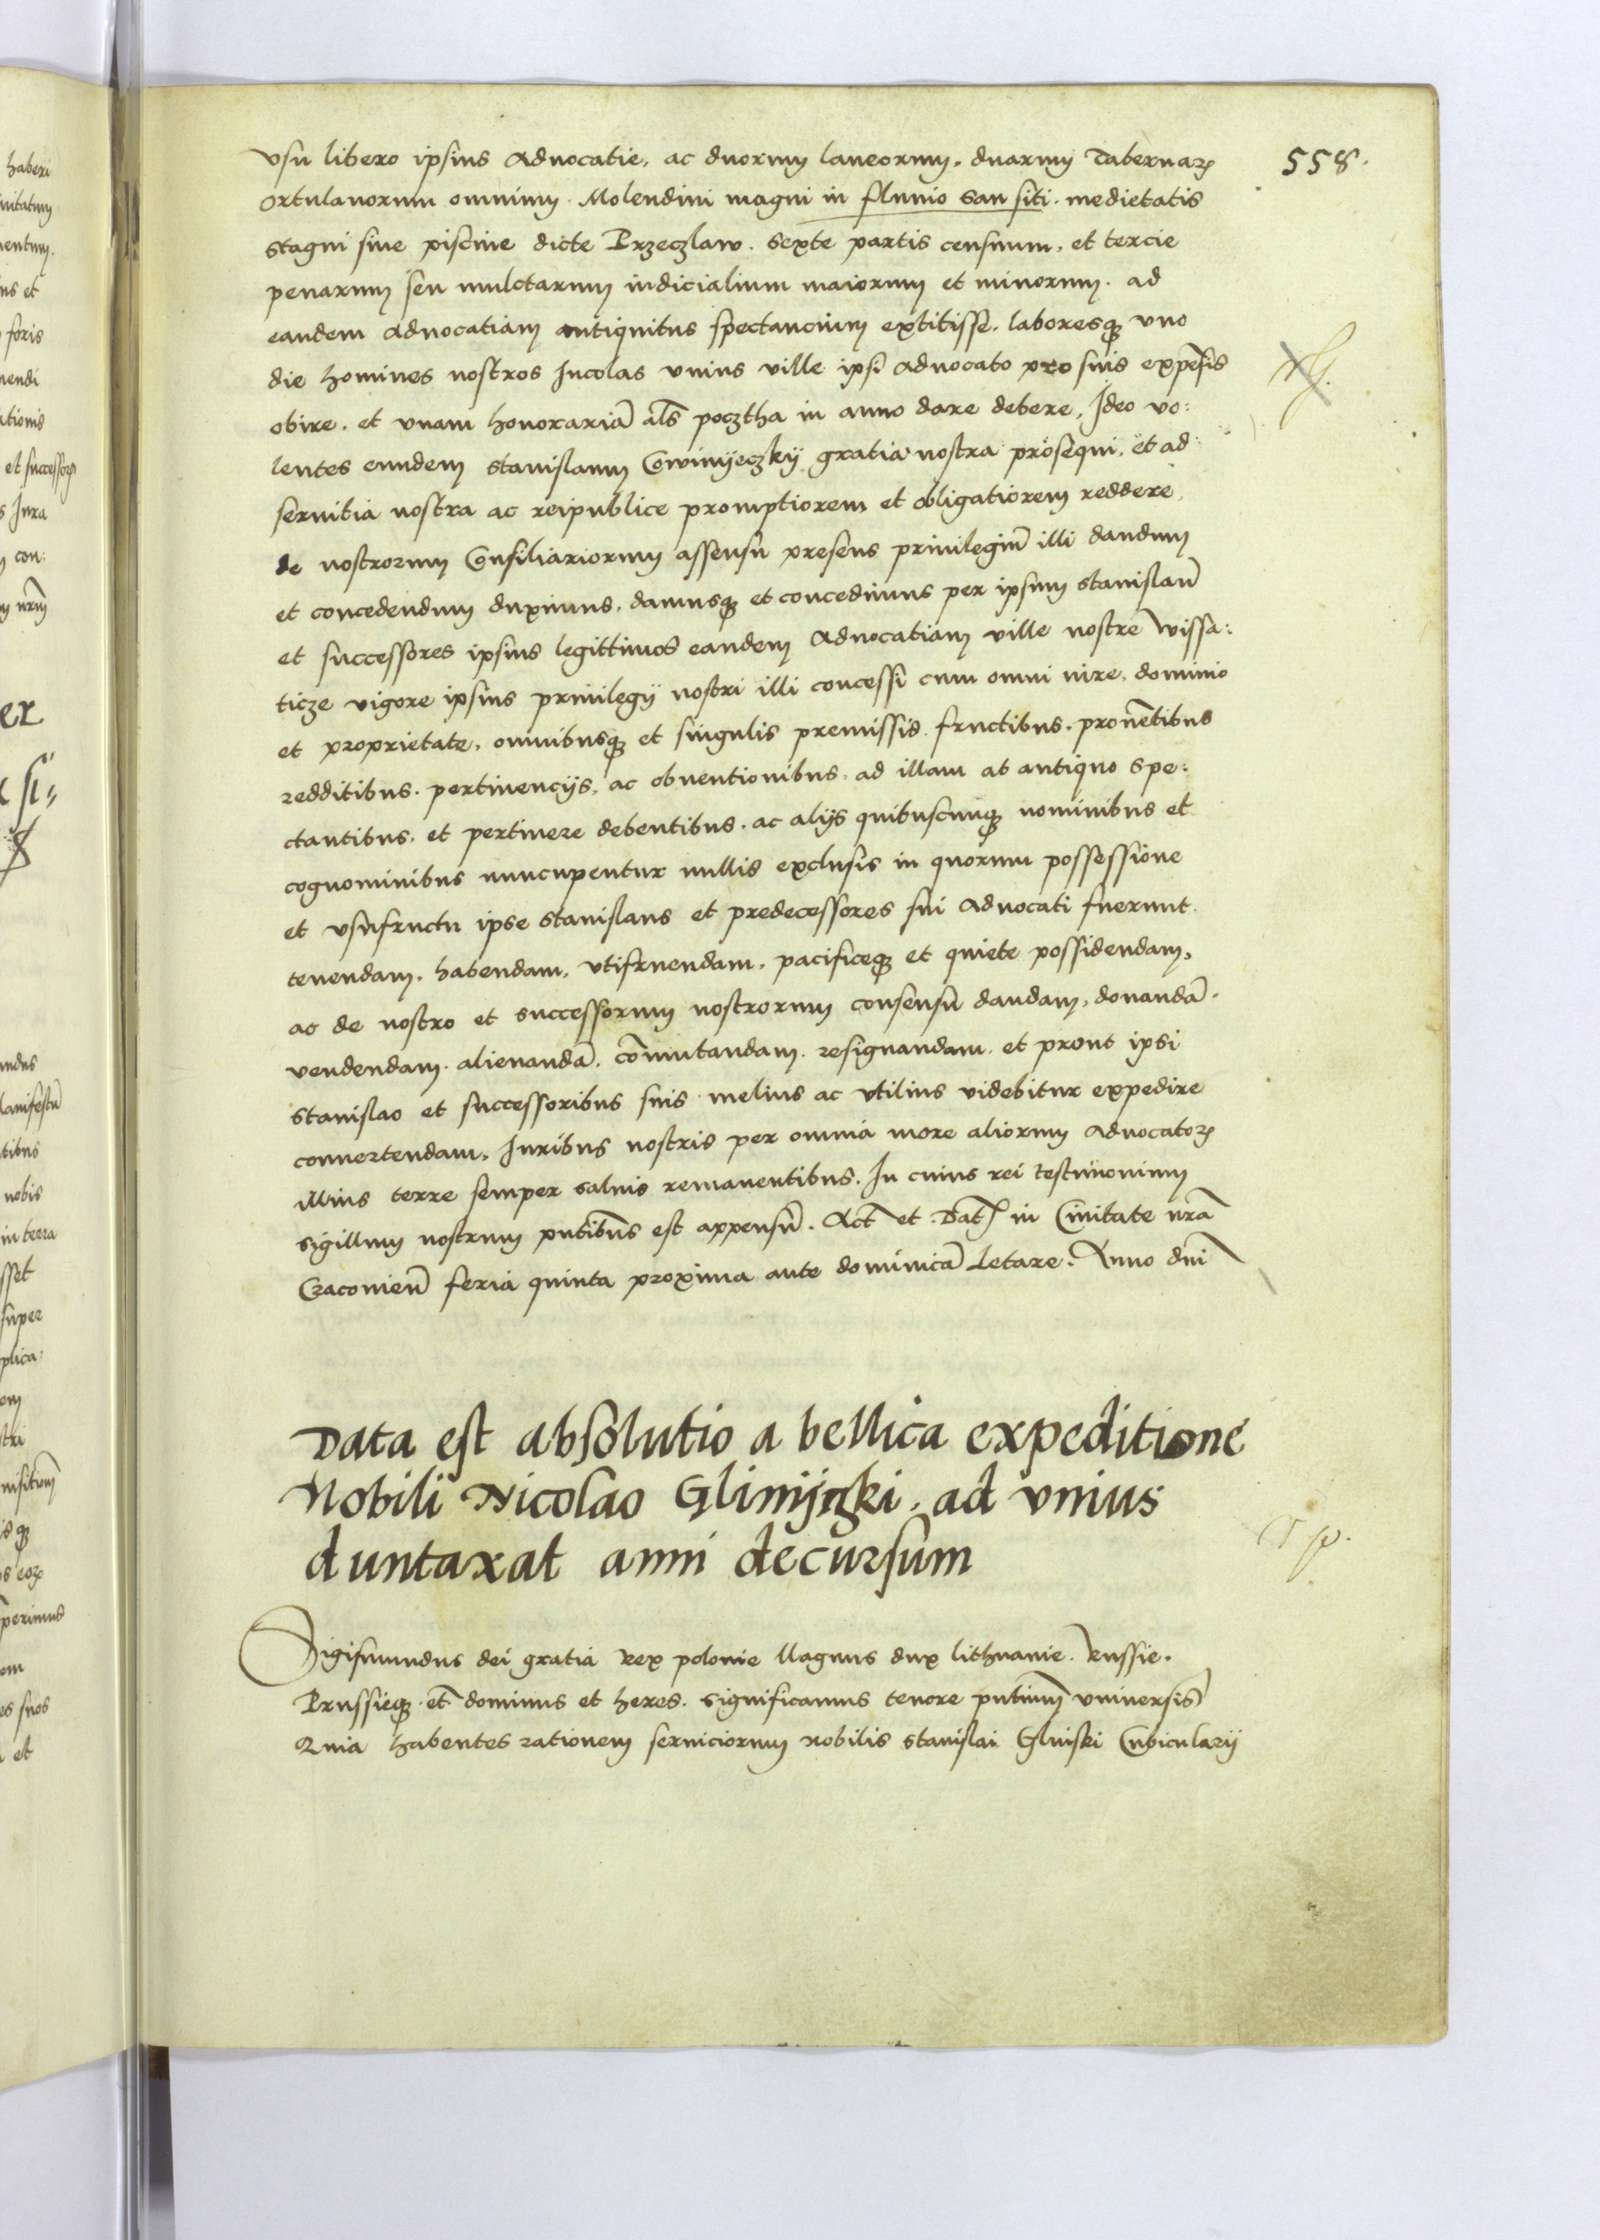 558.
vsu libero ipsius Aduocatie, ac duorum laneorum, duarum Tabernarꝝ
Ortulanorum omnium. Molendini magni in fluuio San siti. medietatis
stagni siue piscine dicte Przeczlaw. Sexte partis censuum, et tercie
penarum seu mulctarum iudicialium maiorum et minorum. ad
eandem Aduocatiam antiquitus spectancium extitisse. laboresqꝫ vno
die homines nostros Incolas vnius ville ipsi Aduocato pro suis expēsis
obire. et vnam honorariā als̄ pocztha in anno dare debere, Ideo vo:
lentes eundem Stanislaum gratia nostra prosequi, et ad
seruitia nostra ac reipublice promptiorem et obligatiorem reddere,
de nostrorum Consiliariorum assensu presens priuilegiū illi dandum
et concedendum duximus, damusqꝫ et concedimus per ipsum Stanislaū
et successores ipsius legittimos eandem Aduocatiam ville nostre Wissa:
ticze vigore ipsius priuilegij nostri illi concessi cum omni iure, dominio
et proprietate, omnibusqꝫ et singulis premissis fructibus. prouētibus
redditibus. pertinencijs, ac obuentionibus, ad illam ab antiquo spe:
ctantibus, et pertinere debentibus. ac alijs quibuscunqꝫ nominibus et
cognominibus nuncupentur nullis exclusis in quorum possessione
et vsufructu ipse Stanislaus et predecessores sui Aduocati fuerunt.
tenendam, habendam, vtifruendam, pacificeqꝫ et quiete possidendam,
ac de nostro et successorum nostrorum consensu dandam, donandā.
vendendam. alienandā. cōmutandam. resignandam. et prout ipsi
Stanislao et successoribus suis melius ac vtilius videbitur expedire
conuertendam, Iuribus nostris per omnia more aliorum Aduocatorꝝ
illius terre semper saluis remanentibus. In cuius rei testimonium
sigillum nostrum pn̄tibus est appensū. Act̄ et Dat̄ in Ciuitate nr̄a
Cracouień feria quinta proxima ante dominicā Letare. Anno dnī
Data est absolutio a bellica expeditione
Nobili Nicolao Glinijnski. ad vnius
duntaxat anni decursum
Sigismundus dei gratia Rex polonie Magnus dux lithuanie. Russie.
Prussieqꝫ. et̄ dominus et heres. significamus tenore pn̄tium vniuersis
Quia habentes rationem seruiciorum nobilis Stanislai Glinski Cubicularij